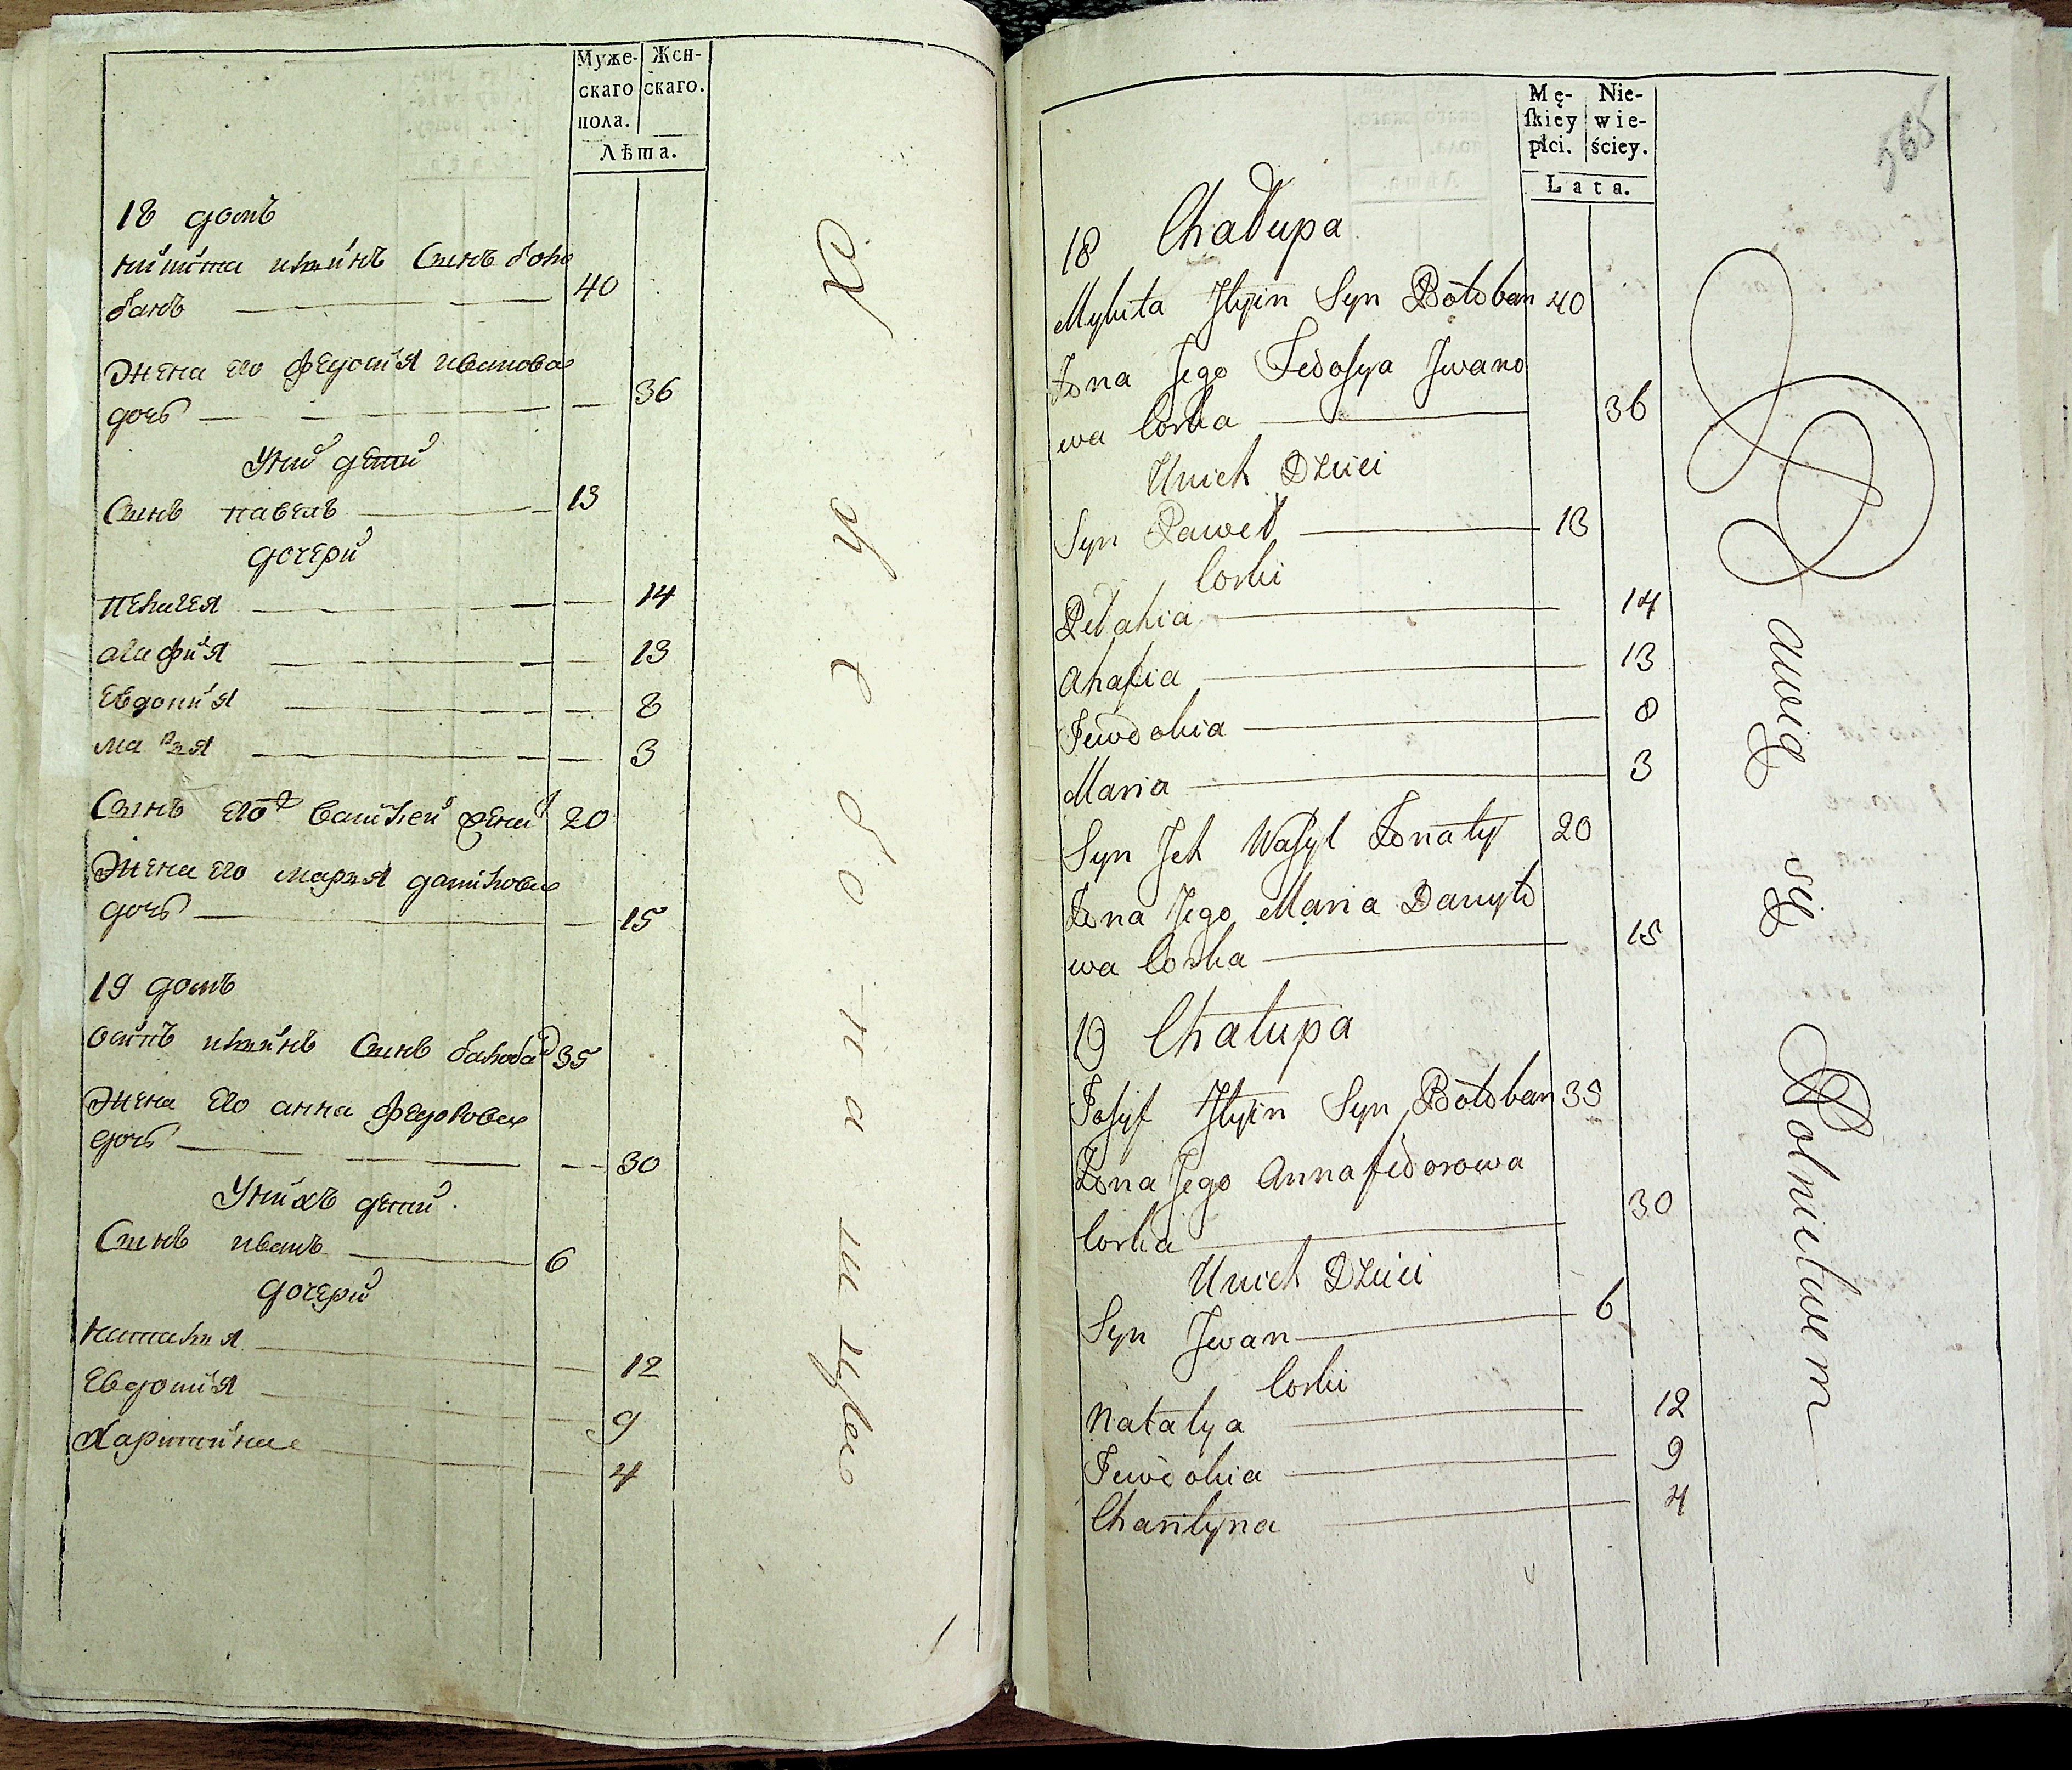 Муже-
скаго
пола.
Жен-
скаго.
Лѣта.
18 домъ
никита илїинъ Синъ боло
банъ 40
Жена его федосїя иванова
дочъ 36
Уних дети
Синъ павелъ 13
дочери
пелагея 14
агафїя 13
Евдокїя 8
марїя 3
Синъ его василей 20
Жена его марїя данилова
дочъ 15
19 домъ
осипъ илїинъ Синъ 35
Жена его анна федорова
дочъ 30
Унихъ дети
Синъ иванъ 6
дочери
наталия 12
Евдокїя 9
Харитина 4
Mę-
skiey
płci.
Nie-
wie-
ściey.
Lata.
565
18 Chałupa
Mykita Jlyin Syn Bołoban 40
Żona Jego Fedosya Jwano
wa Corka 36
Unich Dzieci
Syn Paweł 13
Corki
Pełahia 14
Ahafia 13
Jewdokia 8
Maria 3
Syn Jch Wasyl Żonaty 20
Żona Jego Maria Danyło
wa Corka 15
19 Chałupa
Josyf Jlyin Syn Bołoban 35
Żona Jego Anna fedorowa
Corka 30
Unich Dzieci
Syn Jwan 6
Corki
Natalya 12
Jewdokia 9
Charityna 4
Bawią się Rolnictwem